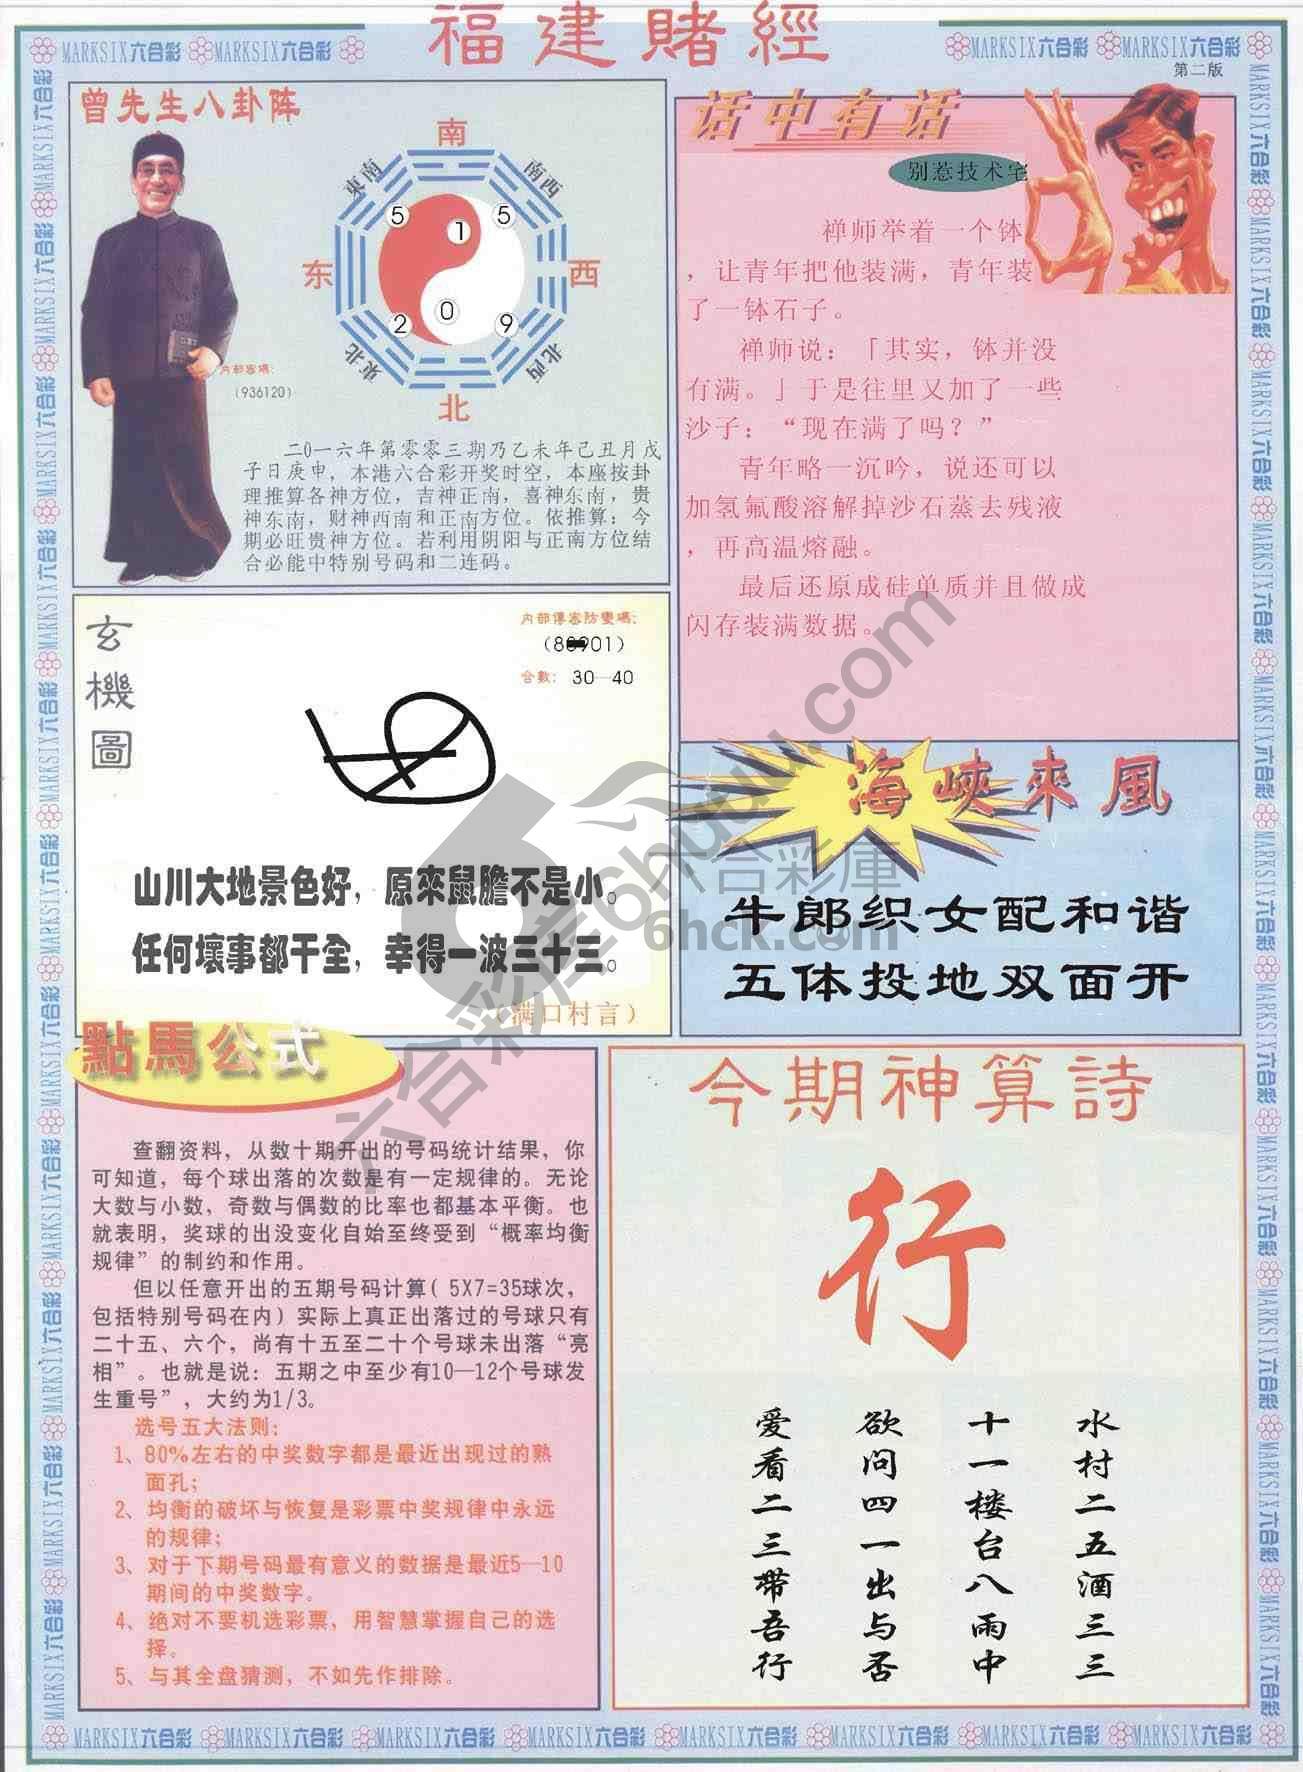 福建賭經
MARKSIX六合彩 MARKSIX六合彩
MARKSIX六合彩 MARKSIX六合彩
第二版
曾先生八卦阵
南
東南
南西
5
1
5
东
西
2
0
9
東北
北西
北
内部密碼:
(936120)
二0一六年第零零三期乃乙未年己丑月戊
子日庚申，本港六合彩开奖时空，本座按卦
理推算各神方位，吉神正南，喜神东南，贵
神东南，财神西南和正南方位。依推算：今
期必旺贵神方位。若利用阴阳与正南方位结
合必能中特别号码和二连码。
话中有话
别惹技术宅
禅师举着一个钵
，让青年把他装满，青年装
了一钵石子。
禅师说：「其实，钵并没
有满。」于是往里又加了一些
沙子：“现在满了吗？”
青年略一沉吟，说还可以
加氢氟酸溶解掉沙石蒸去残液
，再高温熔融。
最后还原成硅单质并且做成
闪存装满数据。
玄機圖
内部傳密防變碼:
合數: 30—40
山川大地景色好，原來鼠膽不是小。
任何壞事都干全，幸得一波三十三。
（满口村言）
海峽來風
牛郎织女配和谐
五体投地双面开
六合彩库
6hck.com
六合彩库6huuu.com
點馬公式
查翻资料，从数十期开出的号码统计结果，你
可知道，每个球出落的次数是有一定规律的。无论
大数与小数，奇数与偶数的比率也都基本平衡。也
就表明，奖球的出没变化自始至终受到“概率均衡
规律”的制约和作用。
但以任意开出的五期号码计算( 5X7=35球次，
包括特别号码在内）实际上真正出落过的号球只有
二十五、六个，尚有十五至二十个号球未出落“亮
相”。也就是说：五期之中至少有10—12个号球发
生重号”，大约为1/3。
选号五大法则：
1、80%左右的中奖数字都是最近出现过的熟
面孔；
2、均衡的破坏与恢复是彩票中奖规律中永远
的规律；
3、对于下期号码最有意义的数据是最近5—10
期间的中奖数字。
4、绝对不要机选彩票，用智慧掌握自己的选
择。
5、与其全盘猜测，不如先作排除。
今期神算詩
行
水村二五酒三三
十一楼台八雨中
欲问四一出与否
爱看二三带吾行
MARKSIX六合彩 MARKSIX六合彩 MARKSIX六合彩 MARKSIX六合彩 MARKSIX六合彩 MARKSIX六合彩 MARKSIX六合彩 MARKSIX六合彩